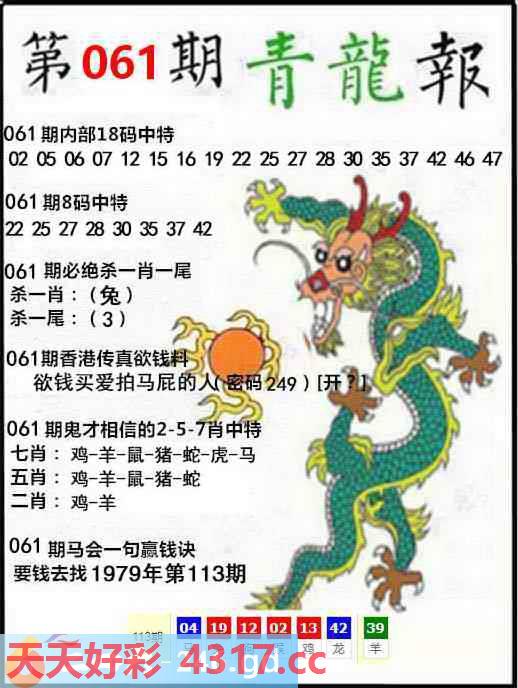 第061期青龍報
061期内部18码中特
02 05 06 07 12 15 16 19 22 25 27 28 30 35 37 42 46 47
061期8码中特
22 25 27 28 30 35 37 42
061期必绝杀一肖一尾
杀一肖：（兔）
杀一尾：（3）
061期香港传真欲钱料
欲钱买爱拍马屁的人(密码249）[开？]
061期鬼才相信的2-5-7肖中特
七肖：鸡-羊-鼠-猪-蛇-虎-马
五肖：鸡-羊-鼠-猪-蛇
二肖：鸡-羊
061期马会一句赢钱诀
要钱去找1979年第113期
113期 04 19 12 02 13 42 39
鸡 龙 羊
天天好彩 4317.cc